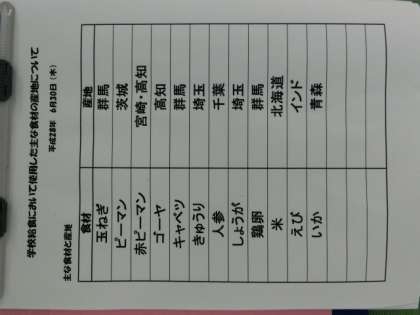 学校給食において使用した主な食材の産地について
平成28年 6月30日(木)
主な食材と産地
食材 産地
玉ねぎ 群馬
ピーマン 茨城
赤ピーマン 宮崎・高知
ゴーヤ 高知
キャベツ 群馬
きゅうり 埼玉
人参 千葉
しょうが 埼玉
鶏卵 群馬
米 北海道
えび インド
いか 青森